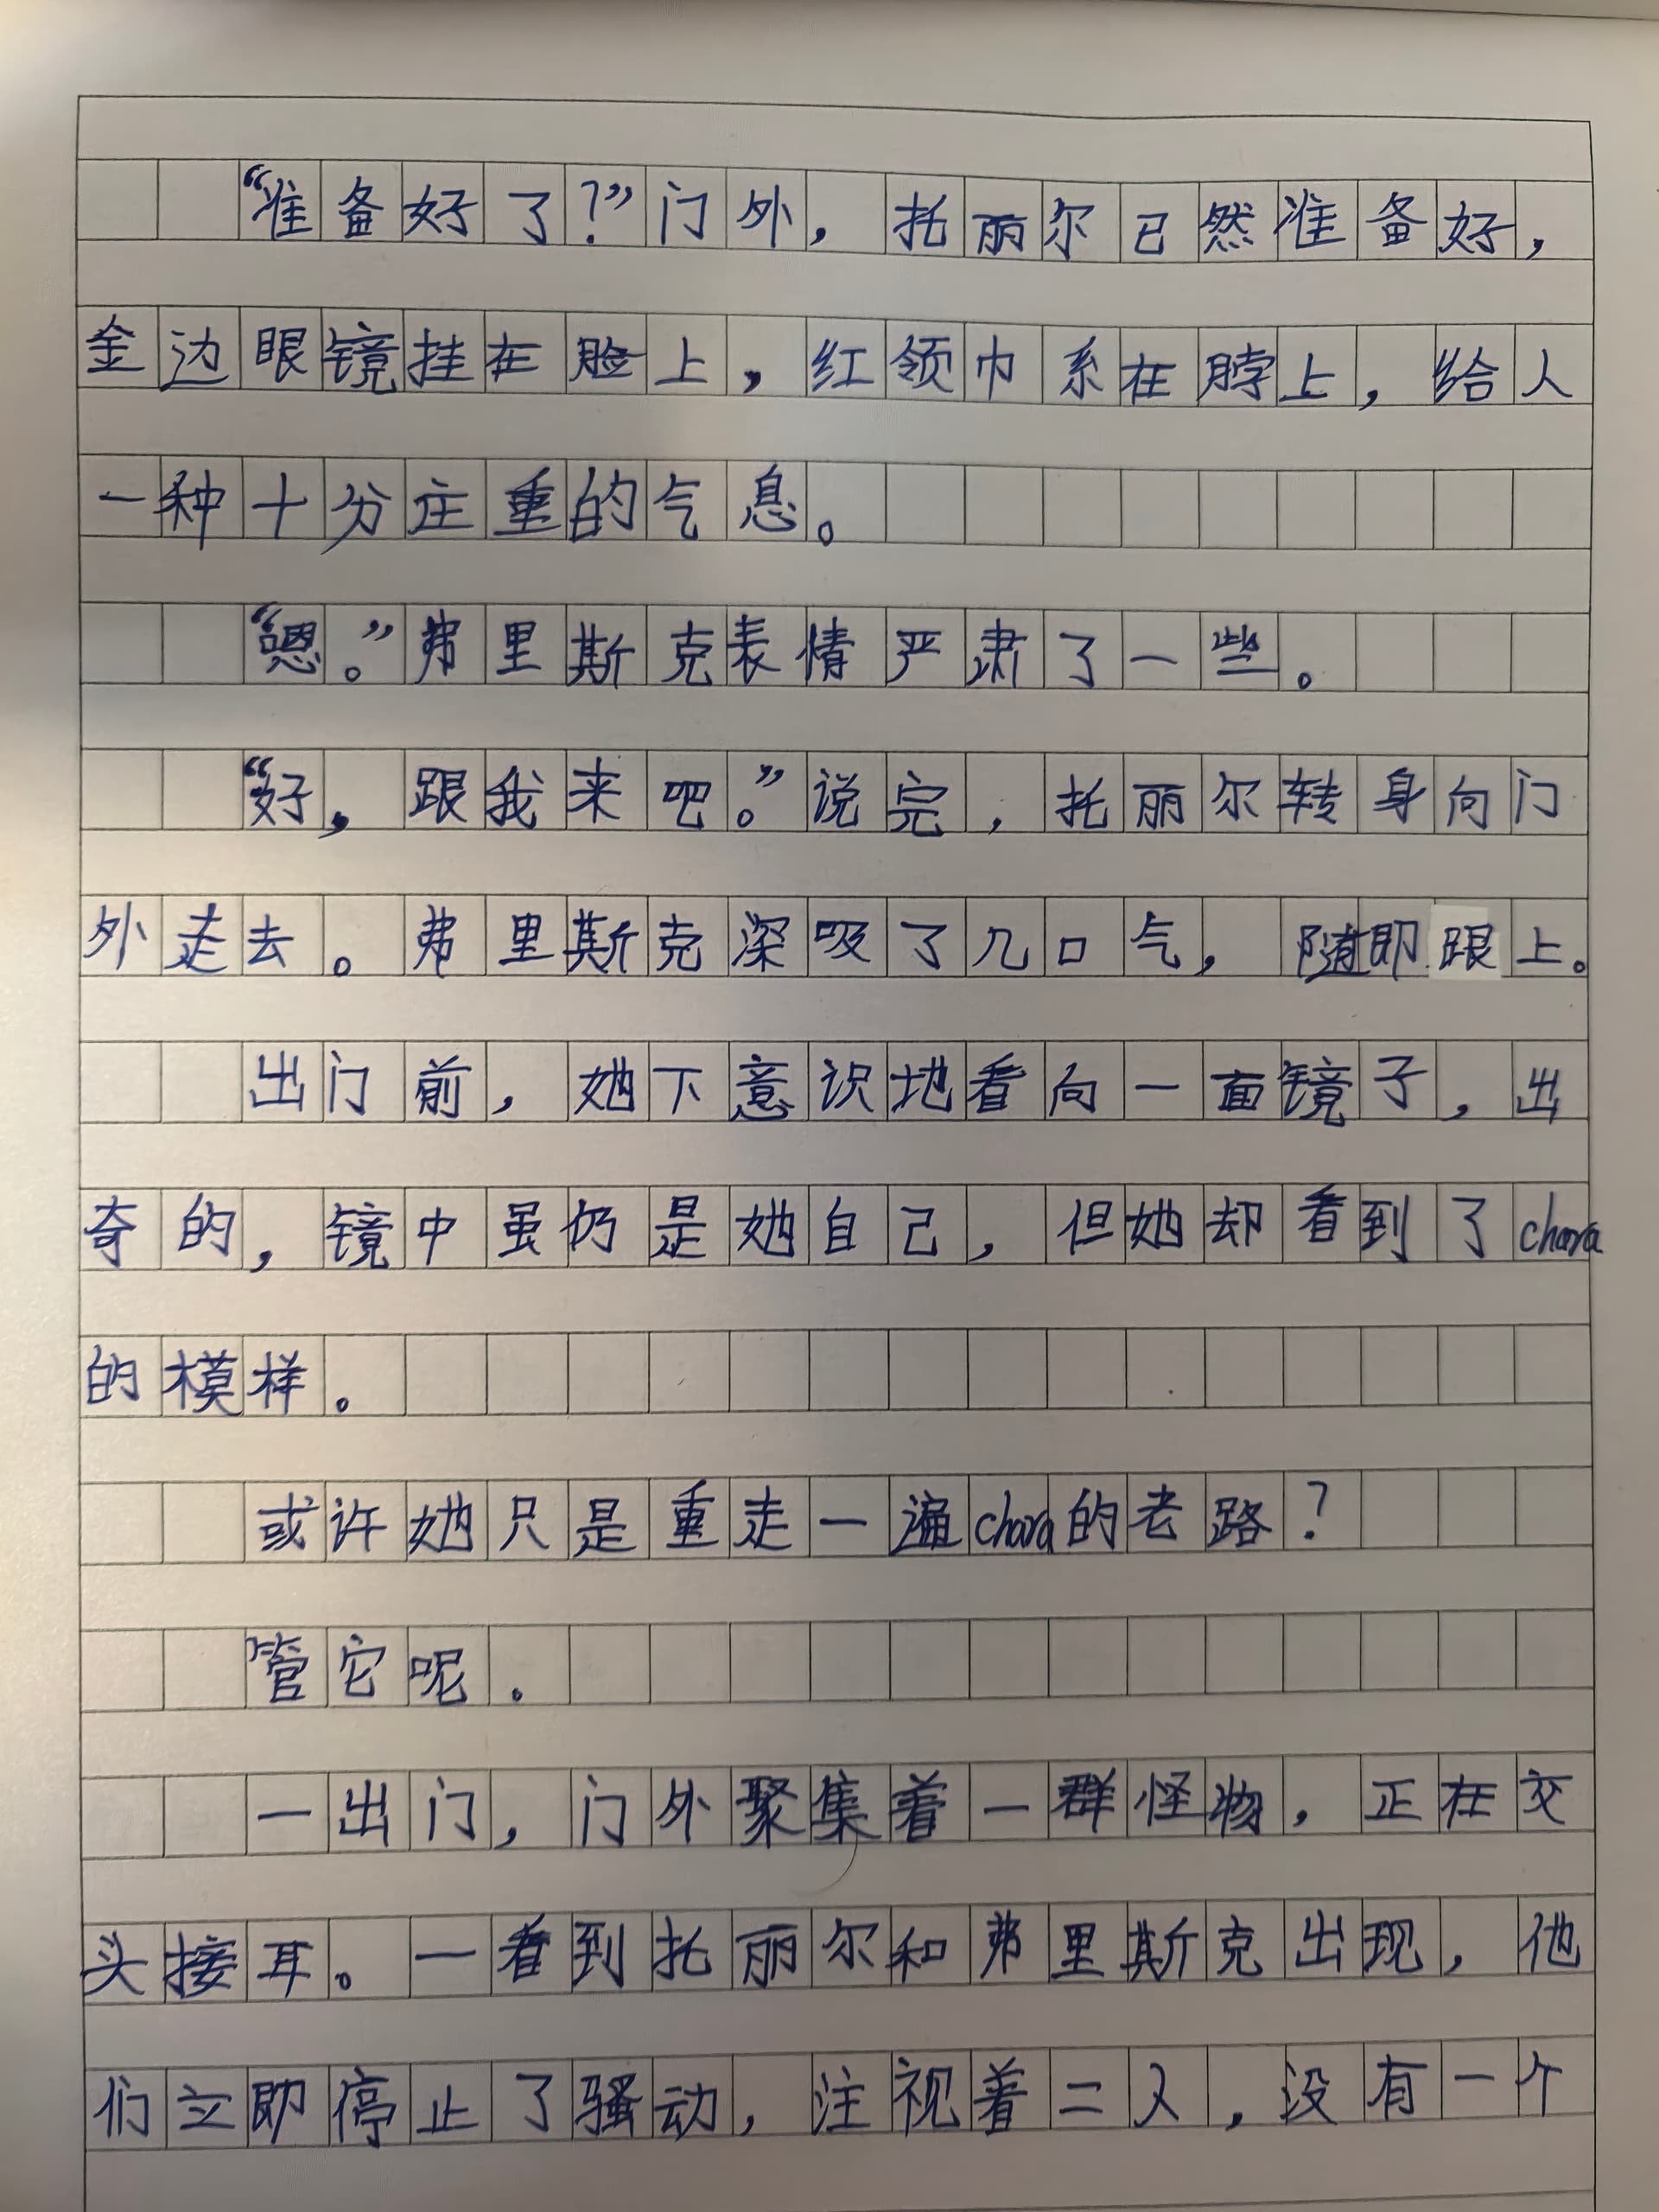 “准备好了?”门外，托丽尔已然准备好，
金边眼镜挂在脸上，红领巾系在脖上，给人
一种十分庄重的气息。
“嗯。”弗里斯克表情严肃了一些。
“好，跟我来吧。”说完，托丽尔转身向门
外走去。弗里斯克深吸了几口气，随即跟上。
出门前，她下意识地看向一面镜子，出
奇的，镜中虽仍是她自己，但她却看到了chara
的模样。
或许她只是重走一遍chara的老路？
管它呢。
一出门，门外聚集着一群怪物，正在交
头接耳。一看到托丽尔和弗里斯克出现，他
们立即停止了骚动，注视着二人，没有一个